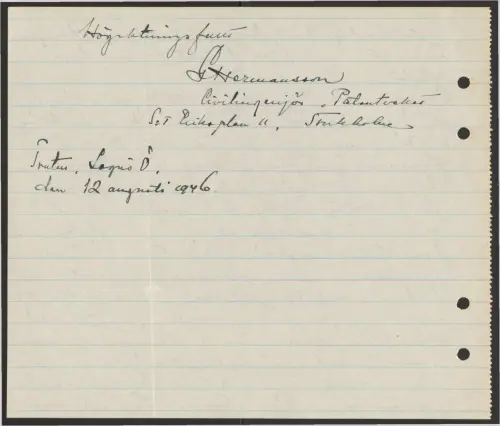 Högaktningsfullt
G Hermansson
Civilingenjör, Patentverket
S:t Eriksplan 11, Stockholm
Ö,
den 12 augusti 1946.